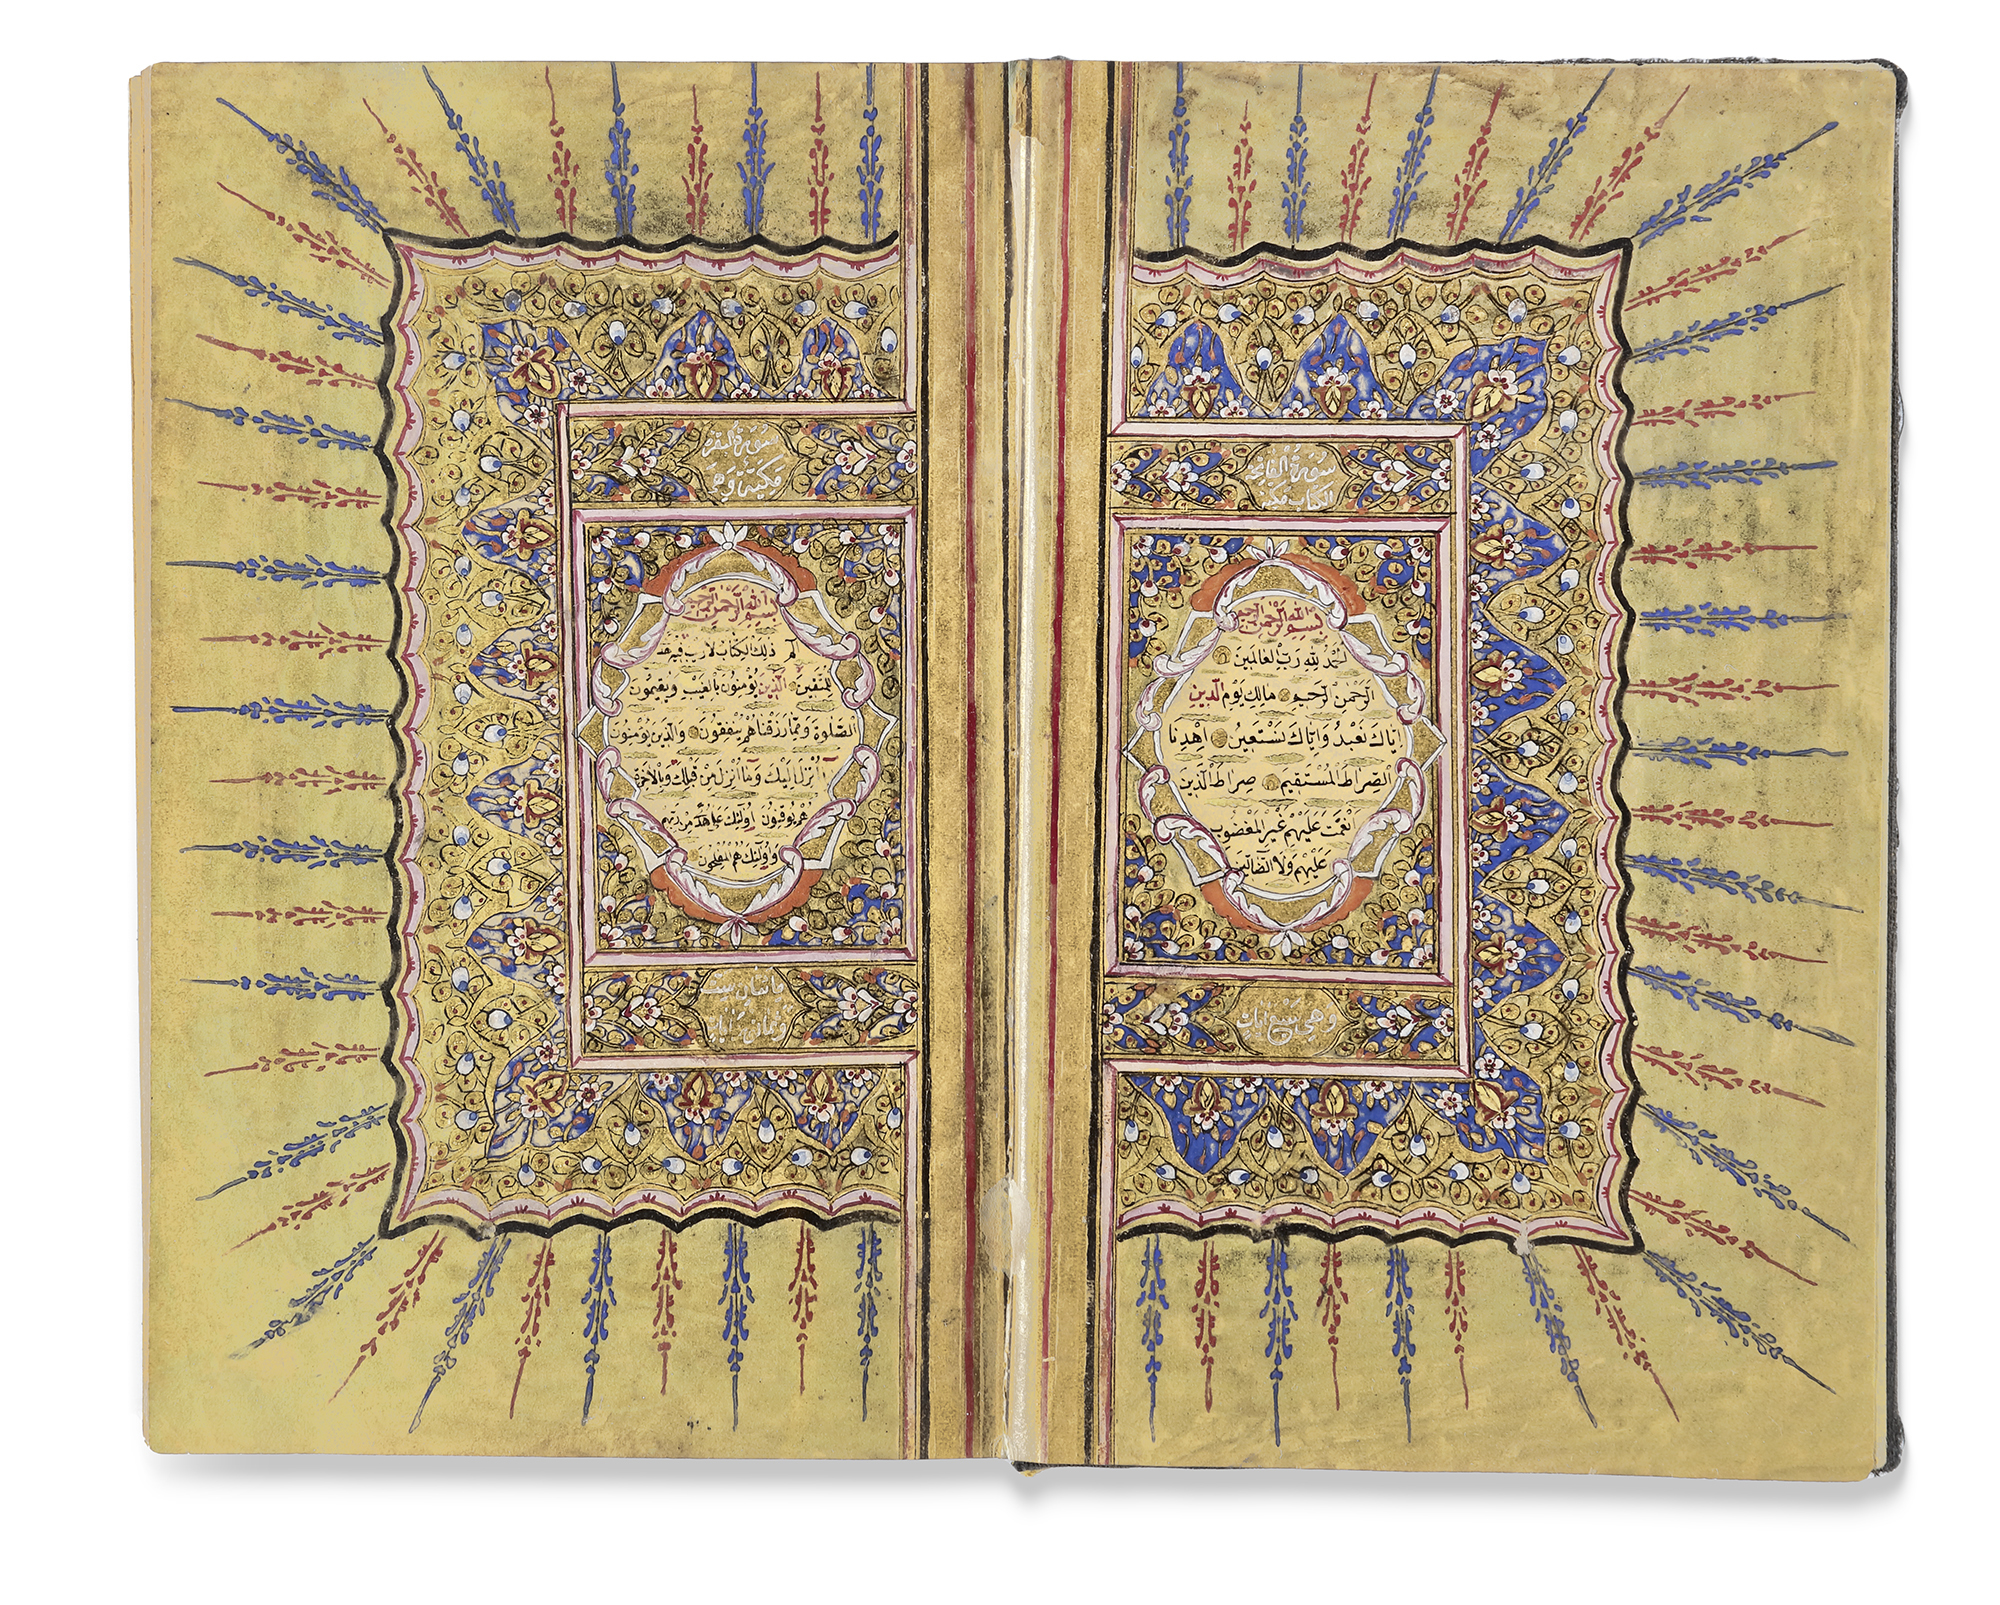 سورة الفاتحة
الكتاب مكية
بسم الله الرحمن الرحيم
الحمد لله رب العالمين
الرحمن الرحيم مالك يوم الدين
اياك نعبد واياك نستعين اهدنا
الصراط المستقيم صراط الذين
انعمت عليهم غير المغضوب
عليهم ولا الضالين
وهي سبع ايات
سورة البقرة
مكية وهي
بسم الله الرحمن الرحيم
الم ذلك الكتاب لا ريب فيه هدى
للمتقين الذين يؤمنون بالغيب ويقيمون
الصلوة ومما رزقناهم ينفقون والذين يؤمنون
بما انزل اليك وما انزل من قبلك وبالاخرة
هم يوقنون اولئك على هدى من ربهم
واولئك هم المفلحون
مائتان وست
وثمانون ايات